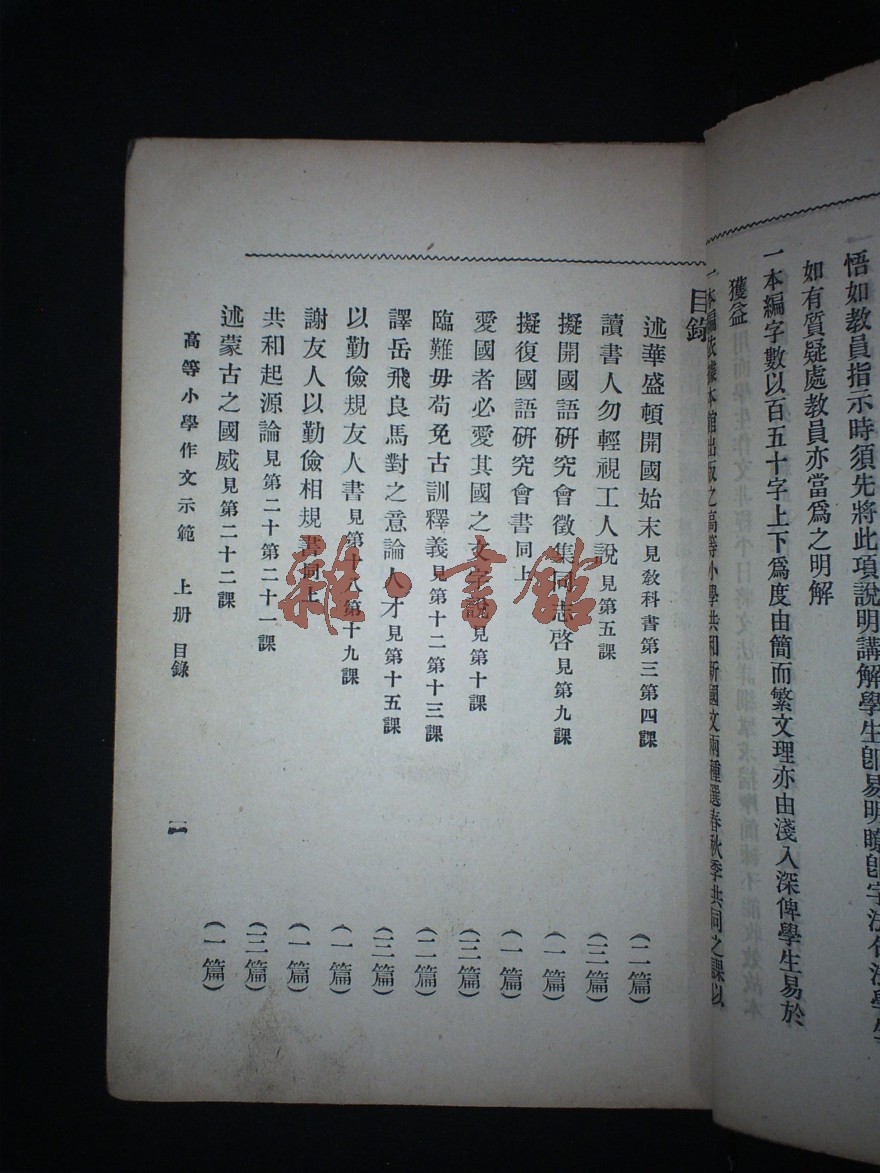 悟如教員指示時須先將此項說明講解學生卽易明瞭卽字法句法學生
如有質疑處教員亦當爲之明解
一本編字數以百五十字上下爲度由簡而繁文理亦由淺入深俾學生易於
獲益
一本編依據本館出版之高等小學共和新國文兩種選春秋季共同之課以
目錄
述華盛頓開國始末見教科書第三第四課 (二篇)
讀書人勿輕視工人說見第五課 (三篇)
擬開國語研究會徵集同志啓見第九課 (一篇)
擬復國語研究會書同上 (一篇)
愛國者必愛其國之文字說見第十課 (三篇)
臨難毋苟免古訓釋義見第十二第十三課 (二篇)
譯岳飛良馬對之意論人才見第十五課 (三篇)
以勤儉規友人書見第十八第十九課 (一篇)
謝友人以勤儉相規書同上 (一篇)
共和起源論見第二十第二十一課 (三篇)
述蒙古之國威見第二十二課 (一篇)
高等小學作文示範 上册 目錄 一
雜·書館